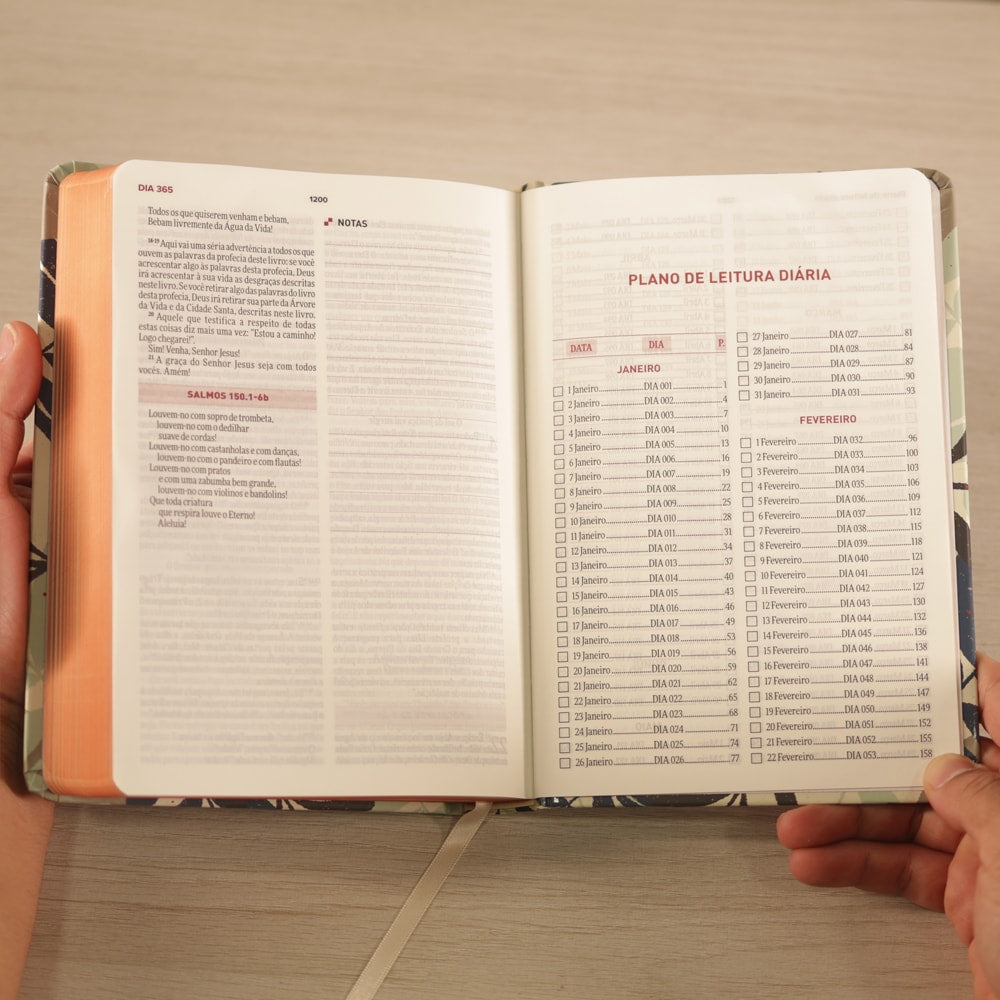 DIA 365
1200
Todos os que quiserem venham e bebam,
Bebam livremente da Água da Vida!
18-19 Aqui vai uma séria advertência a todos os que
ouvem as palavras da profecia deste livro: se você
acrescentar algo às palavras desta profecia, Deus
irá acrescentar à sua vida as desgraças descritas
neste livro. Se você retirar algo das palavras do livro
desta profecia, Deus irá retirar sua parte da Árvore
da Vida e da Cidade Santa, descritas neste livro.
20 Aquele que testifica a respeito de todas
estas coisas diz mais uma vez: "Estou a caminho!
Logo chegarei!".
Sim! Venha, Senhor Jesus!
21 A graça do Senhor Jesus seja com todos
vocês. Amém!
SALMOS 150.1-6b
Louvem-no com sopro de trombeta,
louvem-no com o dedilhar
suave de cordas!
Louvem-no com castanholas e com danças,
louvem-no com o pandeiro e com flautas!
Louvem-no com pratos
e com uma zabumba bem grande,
louvem-no com violinos e bandolins!
Que toda criatura
que respira louve o Eterno!
Aleluia!
NOTAS
PLANO DE LEITURA DIÁRIA
DATA DIA P.
JANEIRO
1 Janeiro DIA 001 1
2 Janeiro DIA 002 4
3 Janeiro DIA 003 7
4 Janeiro DIA 004 10
5 Janeiro DIA 005 13
6 Janeiro DIA 006 16
7 Janeiro DIA 007 19
8 Janeiro DIA 008 22
9 Janeiro DIA 009 25
10 Janeiro DIA 010 28
11 Janeiro DIA 011 31
12 Janeiro DIA 012 34
13 Janeiro DIA 013 37
14 Janeiro DIA 014 40
15 Janeiro DIA 015 43
16 Janeiro DIA 016 46
17 Janeiro DIA 017 49
18 Janeiro DIA 018 53
19 Janeiro DIA 019 56
20 Janeiro DIA 020 59
21 Janeiro DIA 021 62
22 Janeiro DIA 022 65
23 Janeiro DIA 023 68
24 Janeiro DIA 024 71
25 Janeiro DIA 025 74
26 Janeiro DIA 026 77
27 Janeiro DIA 027 81
28 Janeiro DIA 028 84
29 Janeiro DIA 029 87
30 Janeiro DIA 030 90
31 Janeiro DIA 031 93
FEVEREIRO
1 Fevereiro DIA 032 96
2 Fevereiro DIA 033 100
3 Fevereiro DIA 034 103
4 Fevereiro DIA 035 106
5 Fevereiro DIA 036 109
6 Fevereiro DIA 037 112
7 Fevereiro DIA 038 115
8 Fevereiro DIA 039 118
9 Fevereiro DIA 040 121
10 Fevereiro DIA 041 124
11 Fevereiro DIA 042 127
12 Fevereiro DIA 043 130
13 Fevereiro DIA 044 132
14 Fevereiro DIA 045 136
15 Fevereiro DIA 046 138
16 Fevereiro DIA 047 141
17 Fevereiro DIA 048 144
18 Fevereiro DIA 049 147
19 Fevereiro DIA 050 149
20 Fevereiro DIA 051 152
21 Fevereiro DIA 052 155
22 Fevereiro DIA 053 158